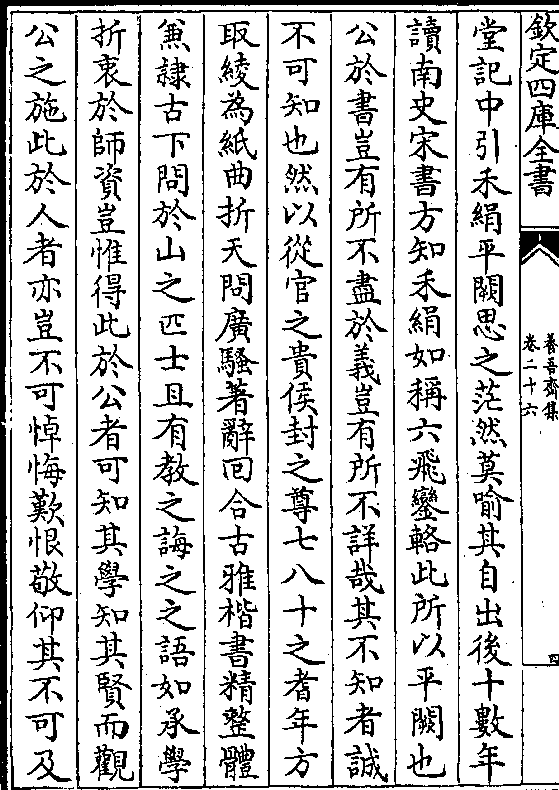 欽定四庫全書
養吾齋集
卷二十六
四
堂記中引禾絹平闕思之茫然莫喻其自出後十數年
讀南史宋書方知禾絹如稱六飛鑾輅此所以平闕也
公於書豈有所不盡於義豈有所不詳哉其不知者誠
不可知也然以從官之貴侯封之尊七八十之耆年方
取綾為紙曲折天問廣騷著辭回合古雅楷書精整體
兼隸古下問於山之匹士且有教之誨之之語如承學
折衷於師資豈惟得此於公者可知其學知其賢而觀
公之施此於人者亦豈不可悼悔歎恨敬仰其不可及